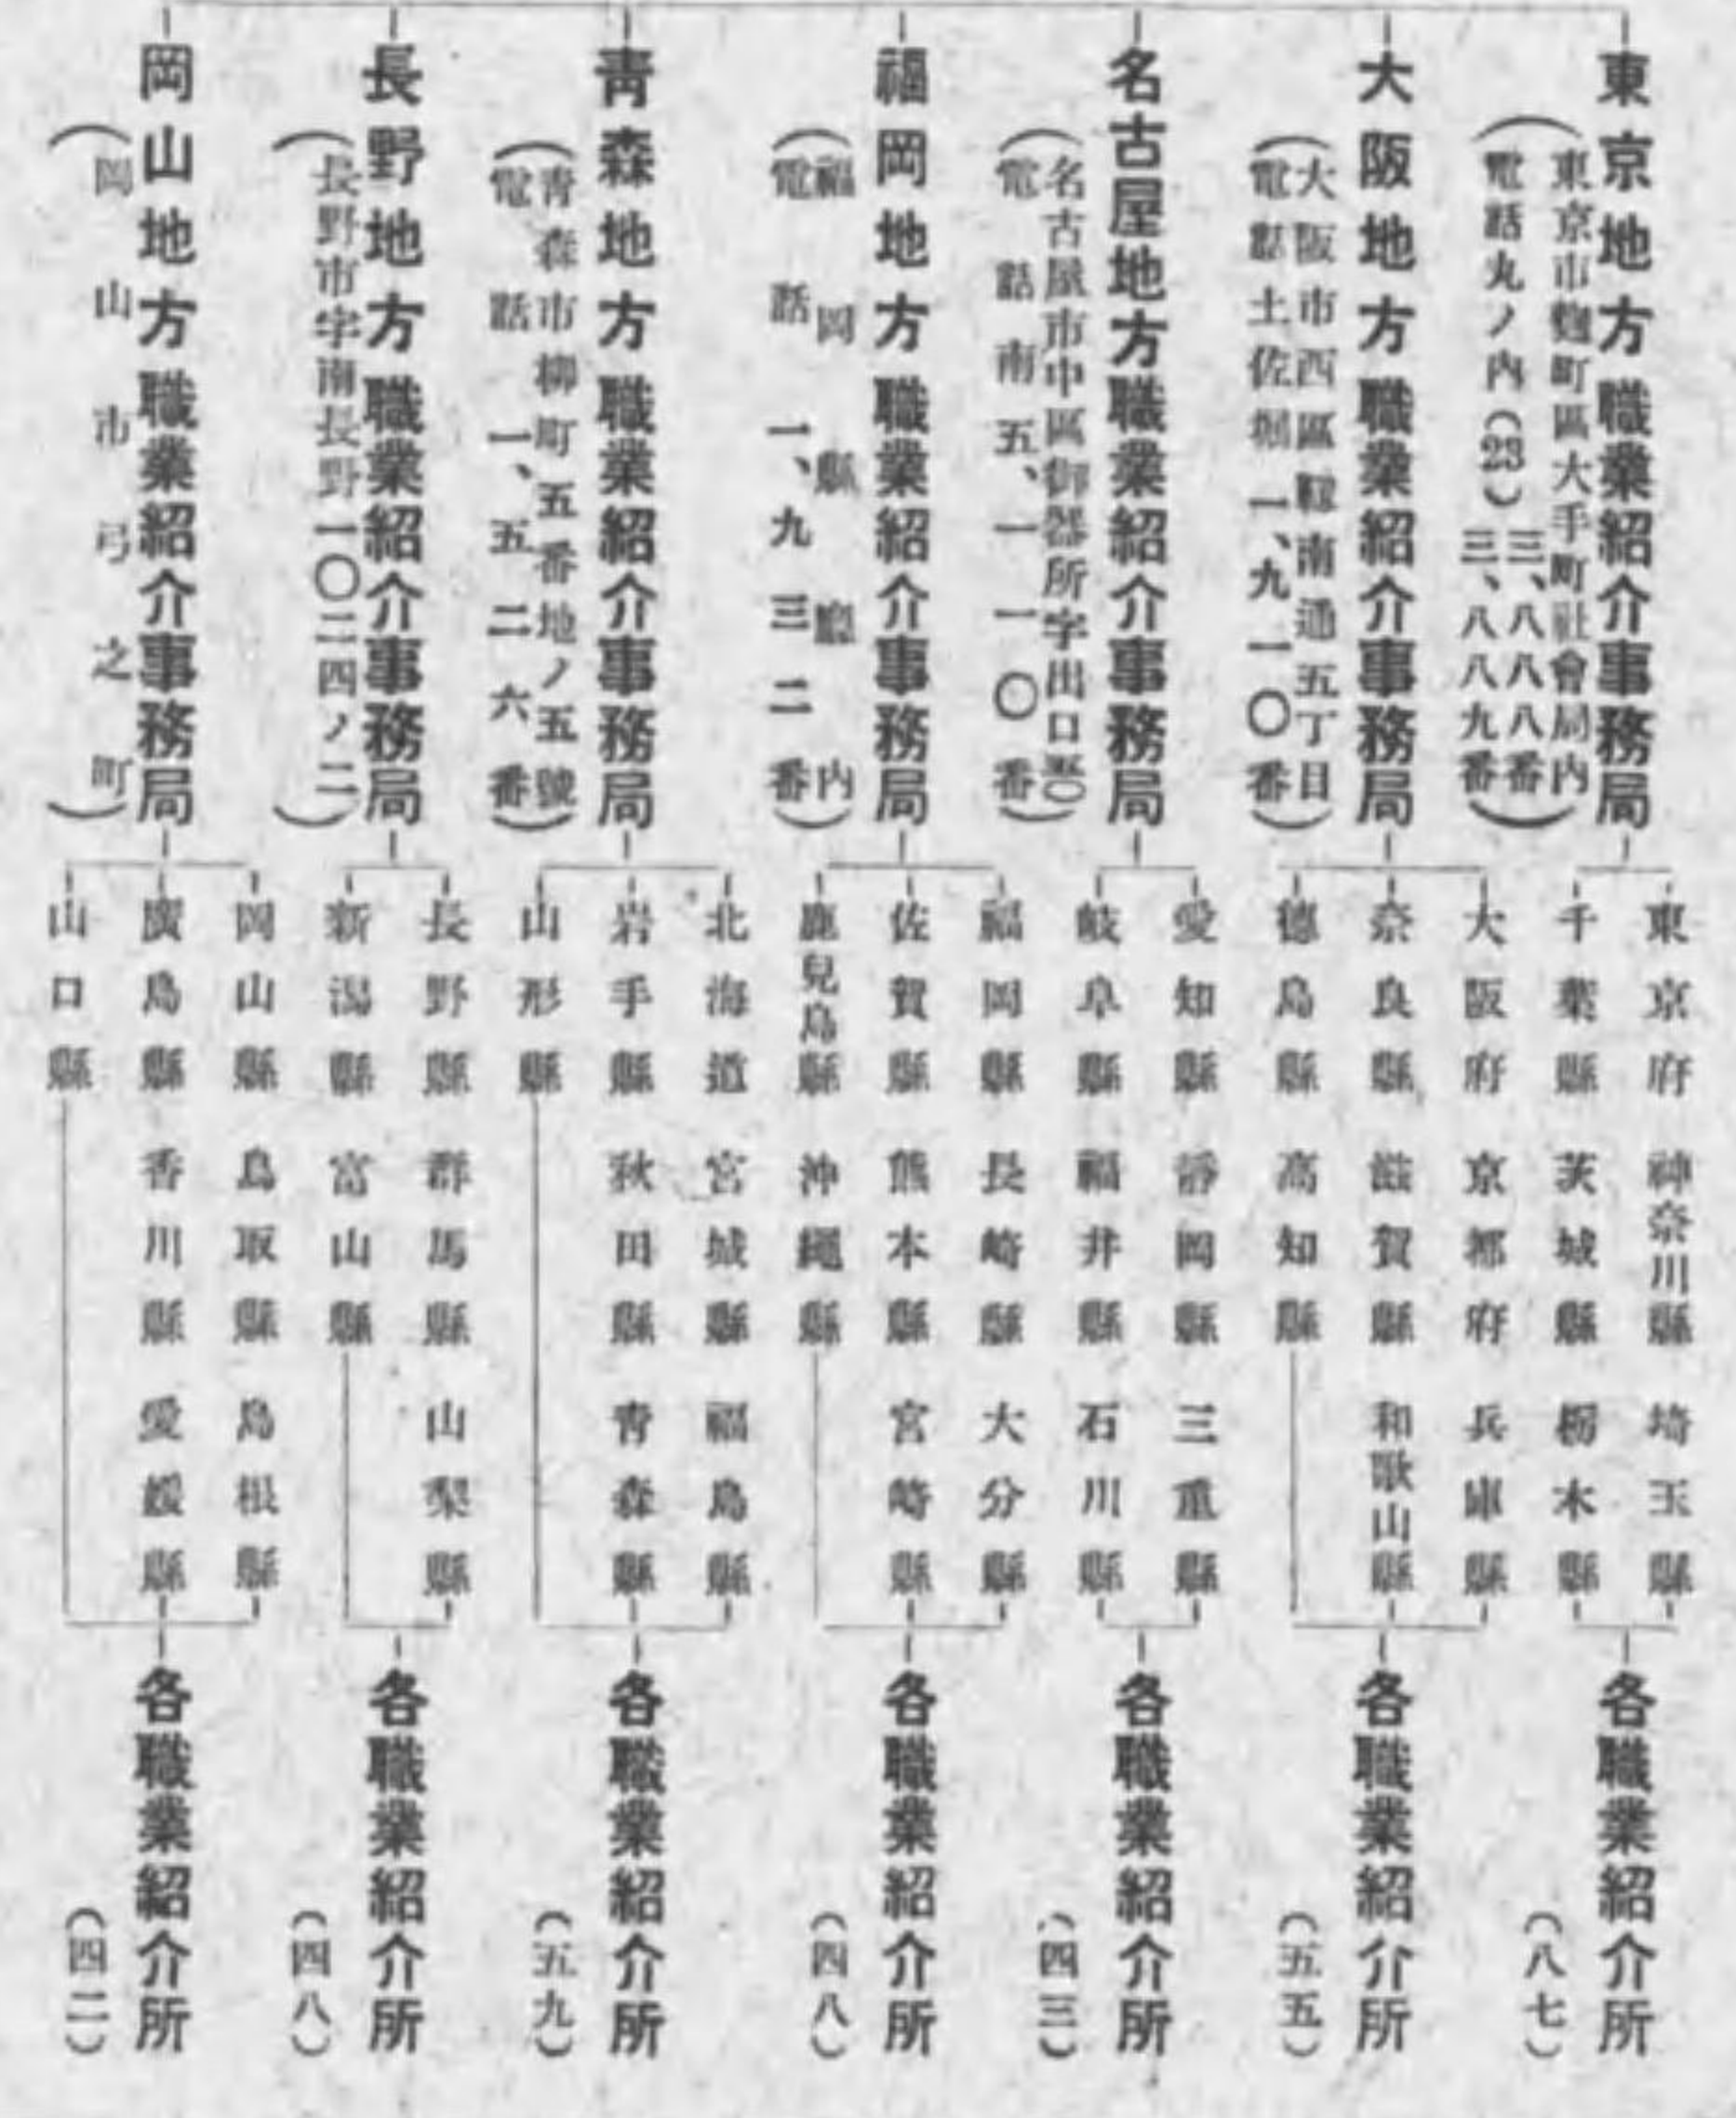 東京地方職業紹介事務局
(東京市麴町區大手町社會局內
電話丸ノ內(23)三、八八八番
三、八八九番)
東京府 神奈川縣 埼玉縣
千葉縣 茨城縣 栃木縣
各職業紹介所
(八七)
大阪地方職業紹介事務局
(大阪市西區靱南通五丁目
電話土佐堀一、九一〇番)
大阪府 京都府 兵庫縣
奈良縣 滋賀縣 和歌山縣
德島縣 高知縣
各職業紹介所
(五五)
名古屋地方職業紹介事務局
(名古屋市中區御器所字出口
電話南五、一一〇番)
愛知縣 靜岡縣 三重縣
岐阜縣 福井縣 石川縣
各職業紹介所
(四三)
福岡地方職業紹介事務局
(福岡縣廳內
電話一、九三二番)
福岡縣 長崎縣 大分縣
佐賀縣 熊本縣 宮崎縣
鹿兒島縣 沖繩縣
各職業紹介所
(四八)
靑森地方職業紹介事務局
(靑森市柳町五番地ノ五號
電話一、五二六番)
北海道 宮城縣 福島縣
岩手縣 秋田縣 靑森縣
山形縣
各職業紹介所
(五九)
長野地方職業紹介事務局
(長野市字南長野一〇二四ノ二)
長野縣 群馬縣 山梨縣
新潟縣 富山縣
各職業紹介所
(四八)
岡山地方職業紹介事務局
(岡山市弓之町)
岡山縣 鳥取縣 島根縣
廣島縣 香川縣 愛媛縣
山口縣
各職業紹介所
(四二)